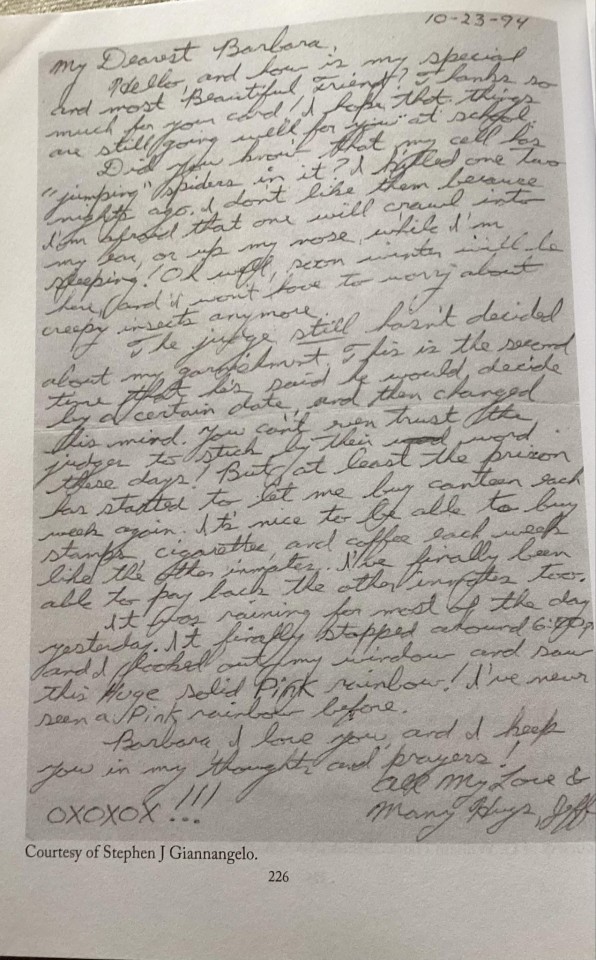 10-23-94
My Dearest Barbara,
Hello, and how is my special
and most Beautiful Friend? Thanks so
much for your card! I hope that things
are still going well for you at school.
Did you know that my cell has
"jumping" spiders in it? I killed one two
nights ago. I don't like them because
I'm afraid that one will crawl into
my ear, or up my nose, while I'm
sleeping! Oh well, soon winter will be
here, and I won't have to worry about
creepy insects anymore.
The judge still hasn't decided
about my garnishment. This is the second
time that he's said he would decide
by a certain date, and then changed
his mind. You can't even trust the
judges to stick by their word
these days! But, at least the prison
has started to let me buy canteen each
week again. It's nice to be able to buy
stamps, cigarettes, and coffee each week
like the other inmates. I've finally been
able to pay back the other inmates too.
It was raining for most of the day
yesterday. It finally stopped around
and I looked out my window and saw
this Huge solid Pink rainbow! I've never
seen a Pink rainbow before.
Barbara, I love you, and I keep
you in my thoughts and prayers!
All My Love &
OXOXOX!!! Many Hugs, Jeff
Courtesy of Stephen J Giannangelo.
226